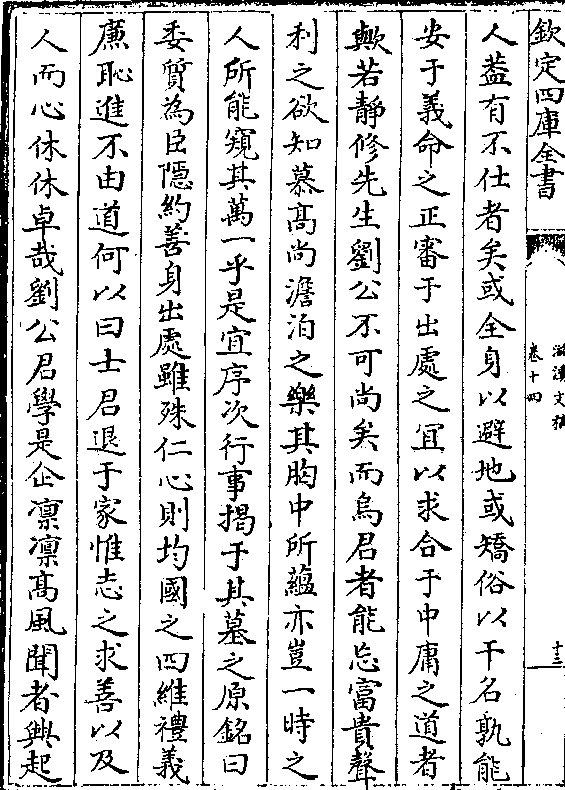 欽定四庫全書
滋溪文稿
卷十四
十三
人葢有不仕者矣或全身以避地或矯俗以干名孰能
安于義命之正審于出處之宜以求合于中庸之道者
歟若静修先生劉公不可尚矣而烏君者能忘富貴聲
利之欲知慕髙尚澹泊之樂其胸中所蘊亦豈一時之
人所能窺其萬一乎是宜序次行事揭于其墓之原銘曰
委質為臣隠約善身出處雖殊仁心則均國之四維禮義
㢘恥進不由道何以曰士君退于家惟志之求善以及
人而心休休卓哉劉公君學是企凛凛髙風聞者興起